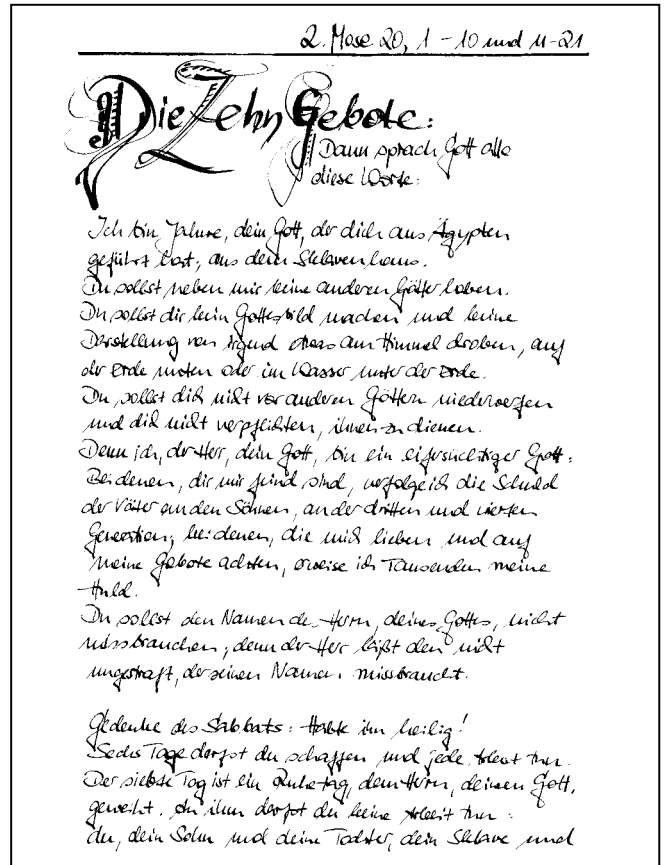 2. Mose 20, 1 - 10 und 11-21
Die Zehn Gebote:
Dann sprach Gott alle
diese Worte:
Ich bin Jahwe, dein Gott, der dich aus Ägypten
geführt hast; aus dem Sklavenhaus.
Du sollst neben mir keine anderen Götter haben.
Du sollst dir kein Gottesbild machen und keine
Darstellung von irgend etwas am Himmel droben, auf
der Erde unten oder im Wasser unter der Erde.
Du sollst dich nicht vor anderen Göttern niederwerfen
und dich nicht verpflichten, ihnen zu dienen.
Denn ich, der Herr, dein Gott, bin ein eifersüchtiger Gott:
Bei denen, die mir feind sind, verfolge ich die Schuld
der Väter an den Söhnen, an der dritten und vierten
Generation; bei denen, die mich lieben und auf
meine Gebote achten, erweise ich Tausenden meine
Huld.
Du sollst den Namen des Herrn, deines Gottes, nicht
missbrauchen; denn der Herr läßt den nicht
ungestraft, der seinen Namen missbraucht.
Gedenke des Sabbats: Halte ihn heilig!
Sechs Tage darfst du schaffen und jede Arbeit tun.
Der siebte Tag ist ein Ruhetag, dem Herrn, deinem Gott,
geweiht. An ihm darfst du keine Arbeit tun:
du, dein Sohn und deine Tochter, dein Sklave und